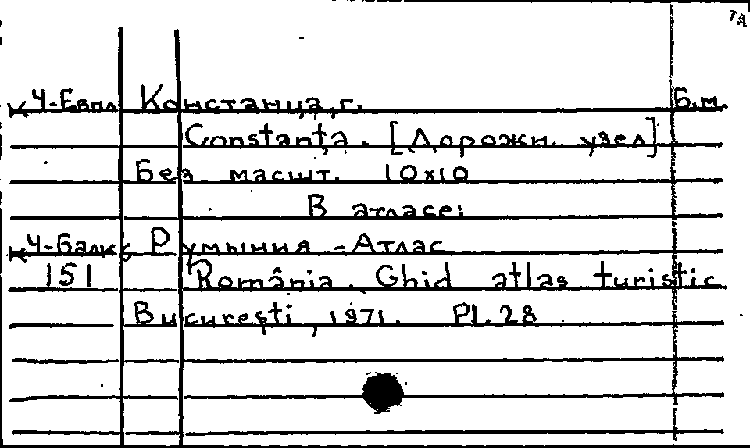 К Ч-Евпл Констанца, г. Б.м.
Constanţa. [Дорожн. узел]
Без масшт. 10х10
В атласе:
К Ч-Балк Румыния - Атлас
151 România. Ghid atlas turistic
Bucureşti, 1971. Pl. 28